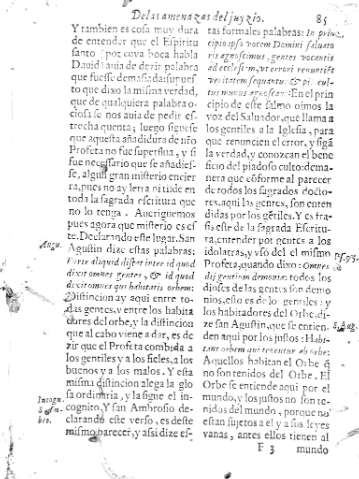 De las amenazas del juyzio. 85
Y tambien es cosa muy dura
de entender que el Espiritu
santo por cuya boca habla
Dauid auia de dezir palabra
que fuesse demasiada: supues-
to que dixo la misma verdad,
que de qualquiera palabra o-
ciosa se nos auia de pedir es-
trecha quenta; luego siguese
que aquesta añadidura de nño
Profeta no fue superflua, y si
fue necessario que se añadies-
se, algun gran misterio encier
ra, pues no ay letra ni tilde en
toda la sagrada escritura que
no lo tenga. Aueriguemos
pues agora que misterio es es-
te. Declarando este lugar San
Agustin dize estas palabras:
Forte aliquid distet inter id quod
dixit omnes gentes, & id quod
dixit omnes qui habitatis orbem:
Distincion ay aqui entre to-
das gentes, y entre los habita
dores del orbe, y la distincion
que al cabo viene a dar, es de
zir que el Profeta combida a
los gentiles y a los fieles, a los
buenos y a los malos. Y esta
misma distincion alega la glo
sa ordinaria, y la sigue el in-
cognito. Y san Ambrosio de-
clarando este verso, es deste
mismo parecer, y assi dize es-
Augu.
Incogn.
S. Am-
bro.
tas formales palabras: In princ
cipio ipso vocem Domini saluato
ris agnoscimus, gentes vocantis
ad ecclesiam, vt errori renuntiēt
veritatem sequantur, & pij cul-
tus munus agnoscant: En el prin
cipio de este salmo oimos la
voz del Saluador, que llama a
los gentiles a la Iglesia, para
que renuncien el error, y sigã
la verdad, y conozcan el bene
ficio del piadoso culto: de ma
nera que cõforme al parecer
de todos los sagrados docto-
res, aqui las gentes, son enten
didas por los gẽtiles. Y es fra-
sis este de la sagrada Escritu-
ra, entender por gentes a los
idolatras, y vso del el mismo
Profeta, quando dixo: Omnes
dij gentium demonia: todos los
dioses de las gentes son demo
nios, esto es de los gentiles: y
los habitadores del Orbe, di-
ze san Agustin, que se entien-
den aqui por los justos:
Aquellos habitan el Orbe q̃
no son tenidos del Orbe. El
Orbe se entiende aqui por el
mundo, y los justos no son te-
nidos del mundo, porque no
estan sujetos a el y a sus leyes
vanas, antes ellos tienen al
Ps. 95.
S. Aug.
F 3 mundo